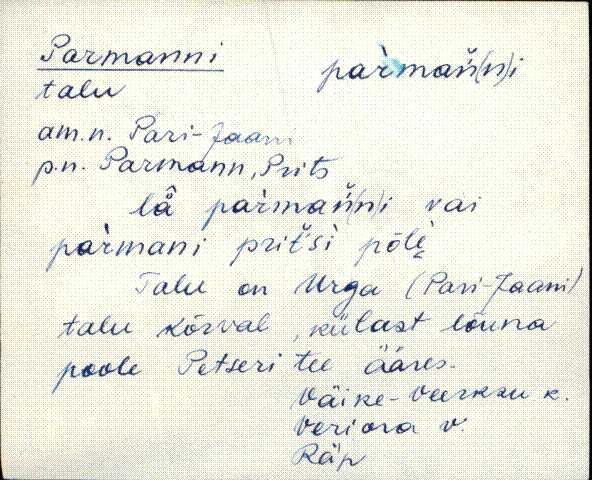 Parmanni pàrmań̆(n)i
talu
am.n. Pari-Jaani
p.n. Parmann, Prits
lǟ pàrmań̆(n)i vai
pàrmani prit̆'śi pōlè̬
Talu on Urga (Pari-Jaani)
talu kõrval, külast lõuna
poole Petseri tee ääres.
Väike-Veerksu k.
Veriora v.
Räp